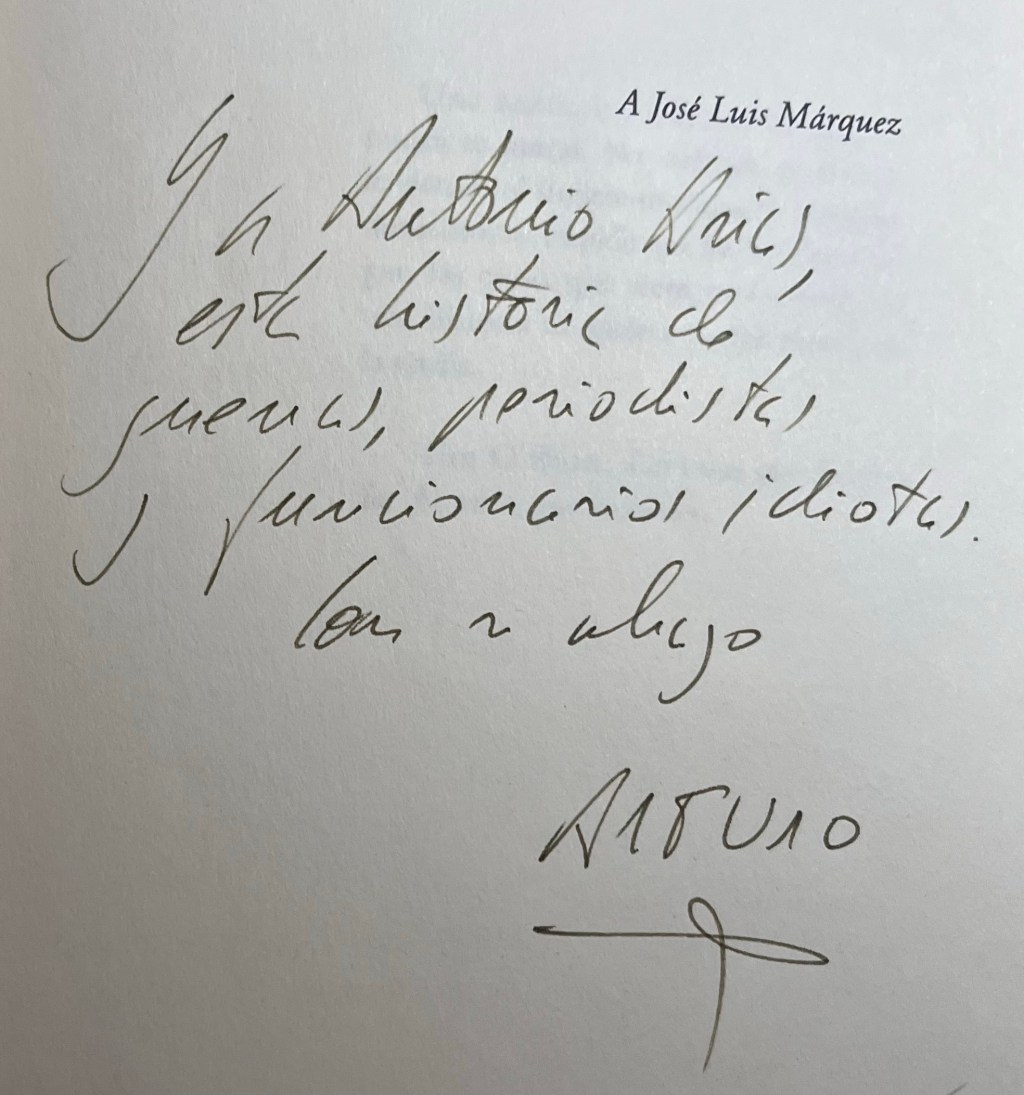 A José Luis Márquez
Y a Antonio Arias,
esta historia de
guerras, periodistas
y funcionarios idiotas.
Con un abrazo
ARTURO